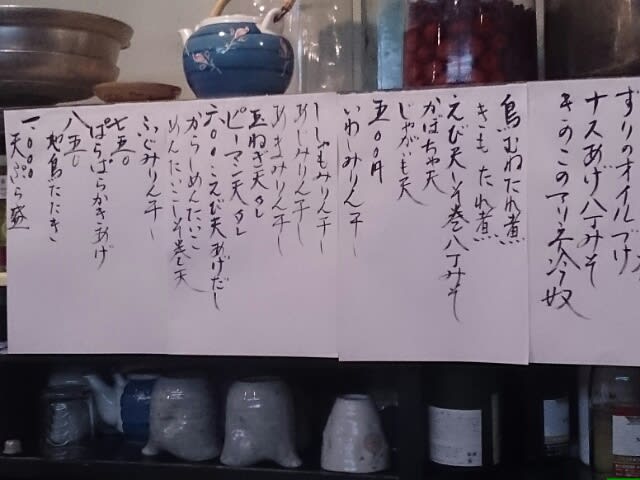 ずりのオイルづけ
ナスあげ八丁みそ
きのこのアリネ冷奴
鳥むねたれ煮
きも たれ煮
えび天しそ巻八丁みそ
かぼちゃ天
じゃがいも天
五〇〇円
いわしみりん干し
ししゃもみりん干し
あじみりん干し
あさみりん干し
玉ねぎ天タレ
ピーマン天タレ
六〇〇・えび天あげだし
からしめんたいこ
めんたいこしそ巻天
ふぐみりん干し
七五〇
ぱらぱらかきあげ
八五〇
地鳥たたき
一、〇〇〇
天ぷら盛